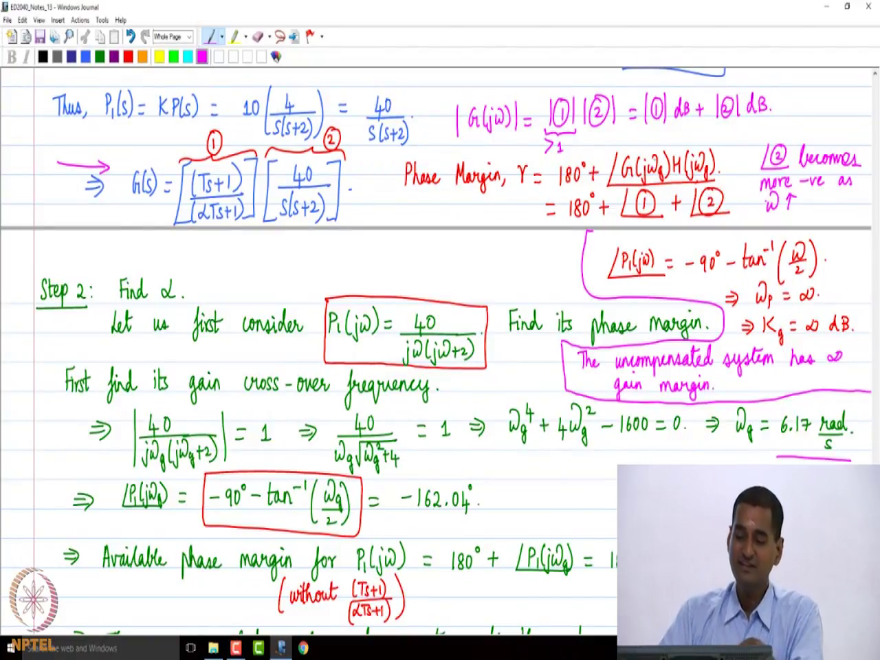 ED2040_Notes_13 - Windows Journal
File Edit View Insert Actions Tools Help
Whole Page
B I
Thus, P₁(s) = KP(s) = 10 (4/(s(s+2))) = 40/(s(s+2)).
|G(jω)| = |①| |②| = |①| dB + |②| dB.
>1
① ②
⇒ G(s) = [(Ts+1)/(αTs+1)] [40/(s(s+2))].
Phase Margin, γ = 180° + ∠G(jωg)H(jωg).
= 180° + ∠① + ∠②
∠② becomes
more -ve as
ω ↑
∠P₁(jω) = -90° - tan⁻¹(ω/2).
⇒ ωp = ∞.
⇒ Kg = ∞ dB.
Step 2: Find α.
Let us first consider P₁(jω) = 40/(jω(jω+2)). Find its phase margin.
The uncompensated system has ∞
gain margin.
First find its gain cross-over frequency.
⇒ |40/(jωg(jωg+2))| = 1 ⇒ 40/(ωg√(ωg²+4)) = 1 ⇒ ωg⁴ + 4ωg² - 1600 = 0. ⇒ ωg = 6.17 rad/s.
⇒ ∠P₁(jωg) = -90° - tan⁻¹(ωg/2) = -162.04°.
⇒ Available phase margin for P₁(jω) = 180° + ∠P₁(jωg) = 1
(without (Ts+1)/(αTs+1))
NPTEL
the web and Windows